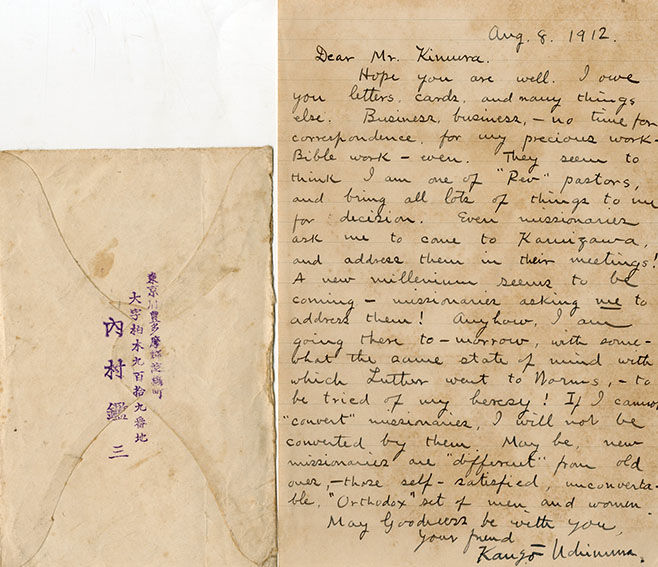 東京府豊多摩郡淀橋町
大字柏木九百拾九番地
內村鑑三
Aug. 8. 1912.
Dear Mr. Kimura.
Hope you are well. I owe
you letters, cards, and many things
else. Business, business, – no time for
correspondence, for my precious work –
Bible work – even. They seem to
think I am one of "Rev" pastors,
and bring all lots of things to me
for decision. Even missionaries
ask me to come to Karuizawa,
and address them in their meetings!
A new millenium seems to be
coming – missionaries asking me to
address them! Anyhow, I am
going there to-morrow, with some-
what the same state of mind with
which Luther went to Worms, – to
be tried of my heresy! If I cannot
"convert" missionaries, I will not be
converted by them. May be, new
missionaries are "different" from old
ones, – those self-satisfied, unconverta-
ble, "Orthodox" set of men and women.
May Goodness be with you,
Your friend
Kanzō Uchimura.